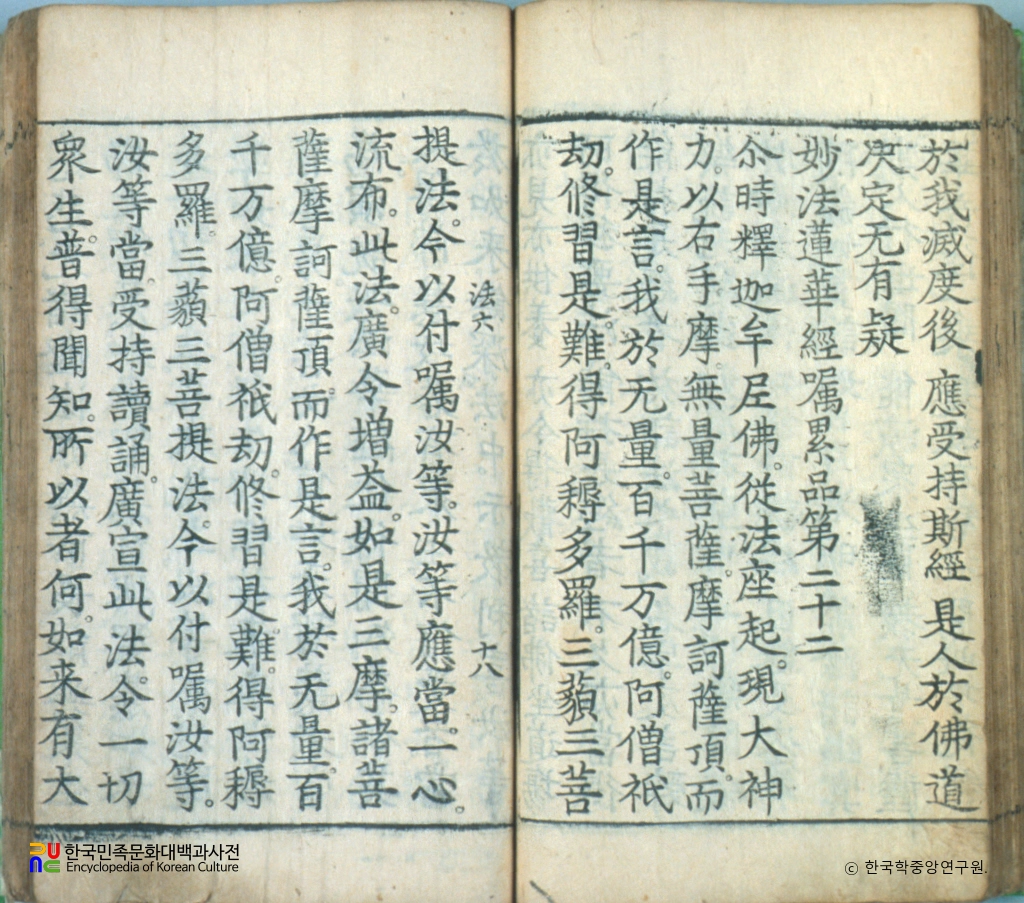 於我滅度後 應受持斯經 是人於佛道
决定无有疑
妙法蓮華經嘱累品第二十二
尒時釋迦牟尼佛。從法座起。現大神
力。以右手摩。無量菩薩。摩訶薩頂。而
作是言。我於无量。百千万億。阿僧祇
劫。修習是。難。得阿耨多羅。三藐三菩
提法。今以付嘱汝等。汝等應當。一心。
流布。此法。廣令增益。如是三摩。諸菩
薩摩訶薩頂。而作是言。我於无量。百
千万億。阿僧祇劫。修習是難。得阿耨
多羅。三藐三菩提法。今以付嘱汝等。
汝等當。受持讀誦。廣宣此法。令一切
衆生。普得聞知。所以者何。如来有大
法六
十八
한국민족문화대백과사전
Encyclopedia of Korean Culture
ⓒ 한국학중앙연구원.